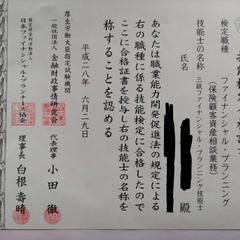 検定職種
ファイナンシャル・プランニング
(保険顧客資産相談業務)
技能士の名称
三級ファイナンシャル・プランニング技能士
氏名
殿
あなたは職業能力開発促進法の規定による
右の職種に係る技能検定に合格したので
ここに合格証書を授与し右の技能士の名称を
称することを認める
平成二八年 六月二九日
厚生労働大臣指定試験機関
一般社団法人 金融財政事情研究会
代表理事 小田 徹
日本ファイナンシャル・プランナーズ協会
理事長 白根 壽晴